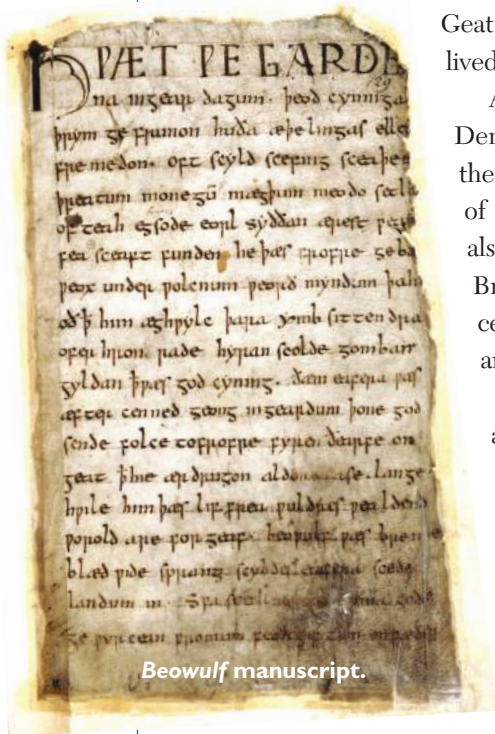 HǷÆT ǷE GARDE
na ingear dagum . þeod cyninga
þrym ge frunon huða æþelingas elle
fre medon . oft scyld scefing sceaþe
þreatum monegū mægþum meodo setla
of teah egsode eorl syððan ærest
fea sceaft funden he þæs frofre geba
ƿeox under ƿolcnum ƿeorð myndum þah
oð þ him æghƿylc þara ymb sittendra
ofer hron rade hyran scolde gomban
gyldan þ ƿæs god cyning . ðæm eafera ƿæs
æfter cenned geong ingeardum þone god
sende folce tofrofre fyren ðearfe on
geat þ hie ær drugon lange
hƿile him þæs lif frea ƿealdend
ƿorold are for geaf . beoƿulf ƿæs breme
blæd ƿide sprang scyldes eafera scede
landum in . Sƿa
ge ƿyrcean fromum
Beowulf manuscript.
Geat
lived
A
Den
the
of
als
Br
ce
a